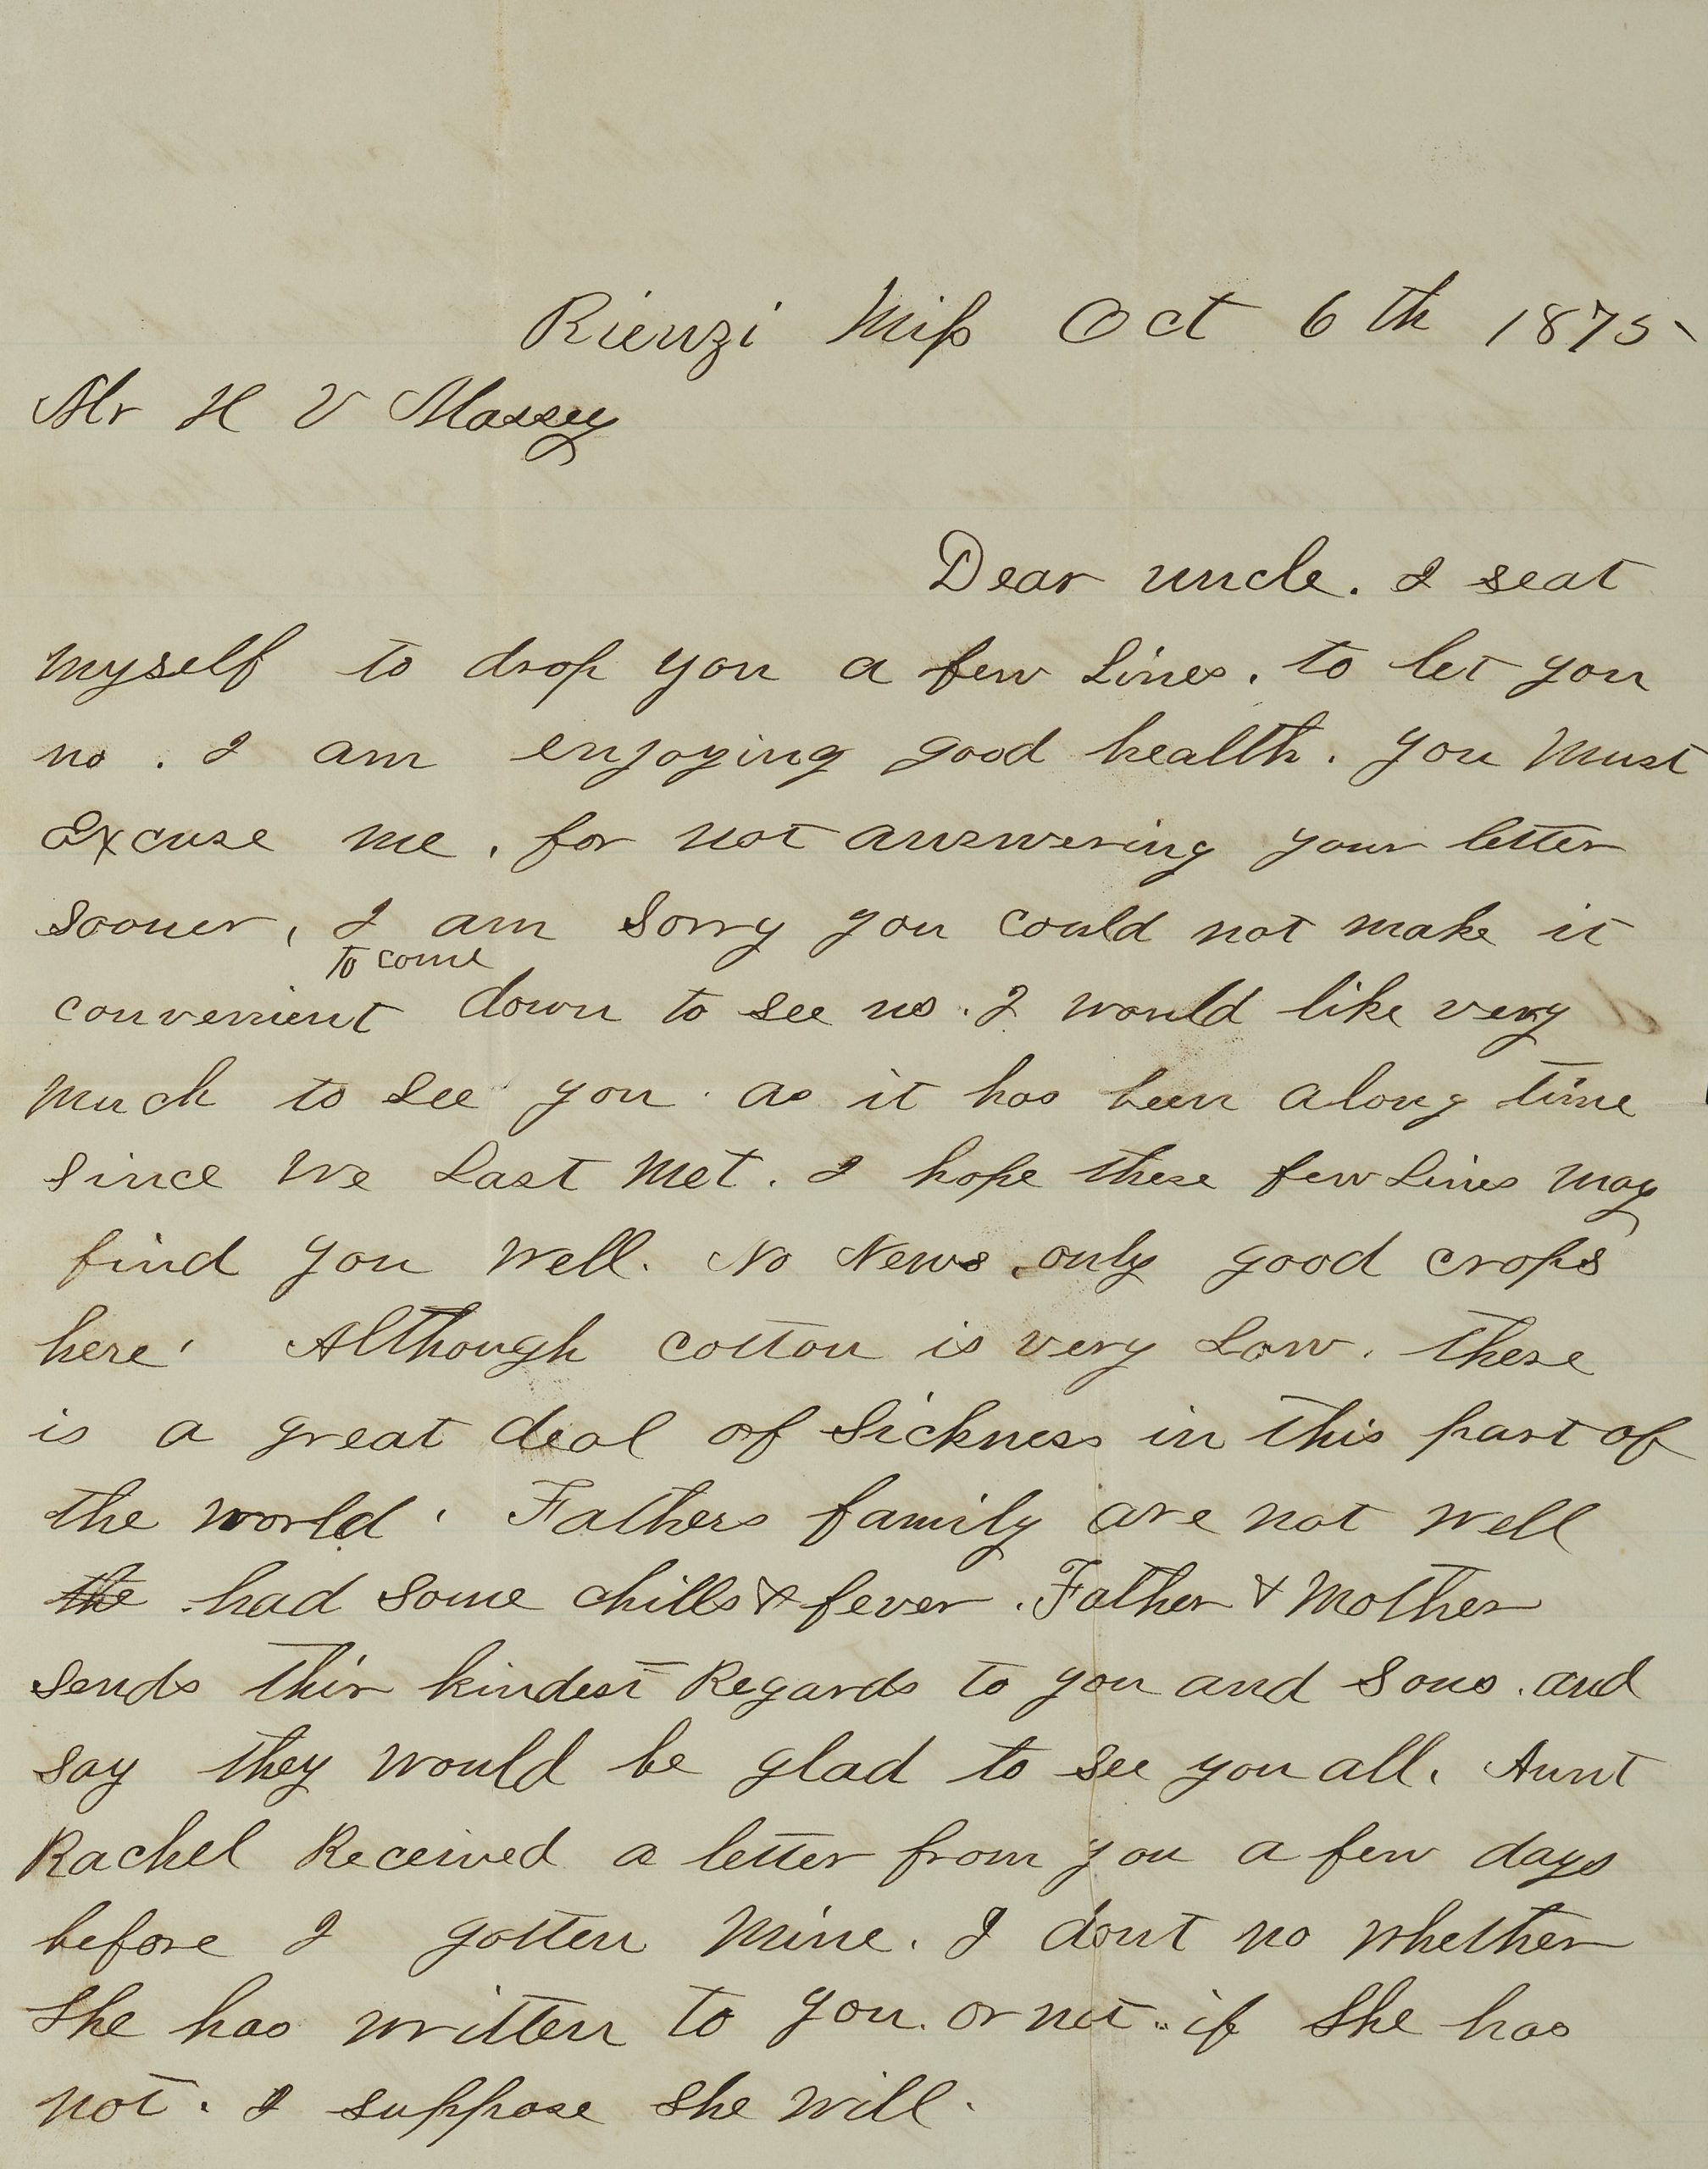 Rienzi Miss Oct 6th 1875
Mr H V Massey
Dear uncle. I seat
myself to drop you a few Lines. to let you
no. I am enjoying good health. you Must
Excuse me. for not answering your letter
sooner, I am Sorry you could not make it
to come
convenient down to see us. I would like very
Much to see you. as it has been along time
since We Last Met. I hope these few Lines May
find you Well. No News only good crops
here. Although cotton is very Low. there
is a great deal of Sickness in this part of
the world. Fathers family are not well
the had some chills & fever. Father & Mother
sends thir kindest Regards to you and Sons. and
say they would be glad to see you all. Aunt
Rachel Received a letter from you a few days
before I gotten Mine. I dont no whether
She has written to you. or not. if She has
not. I suppose She Will.